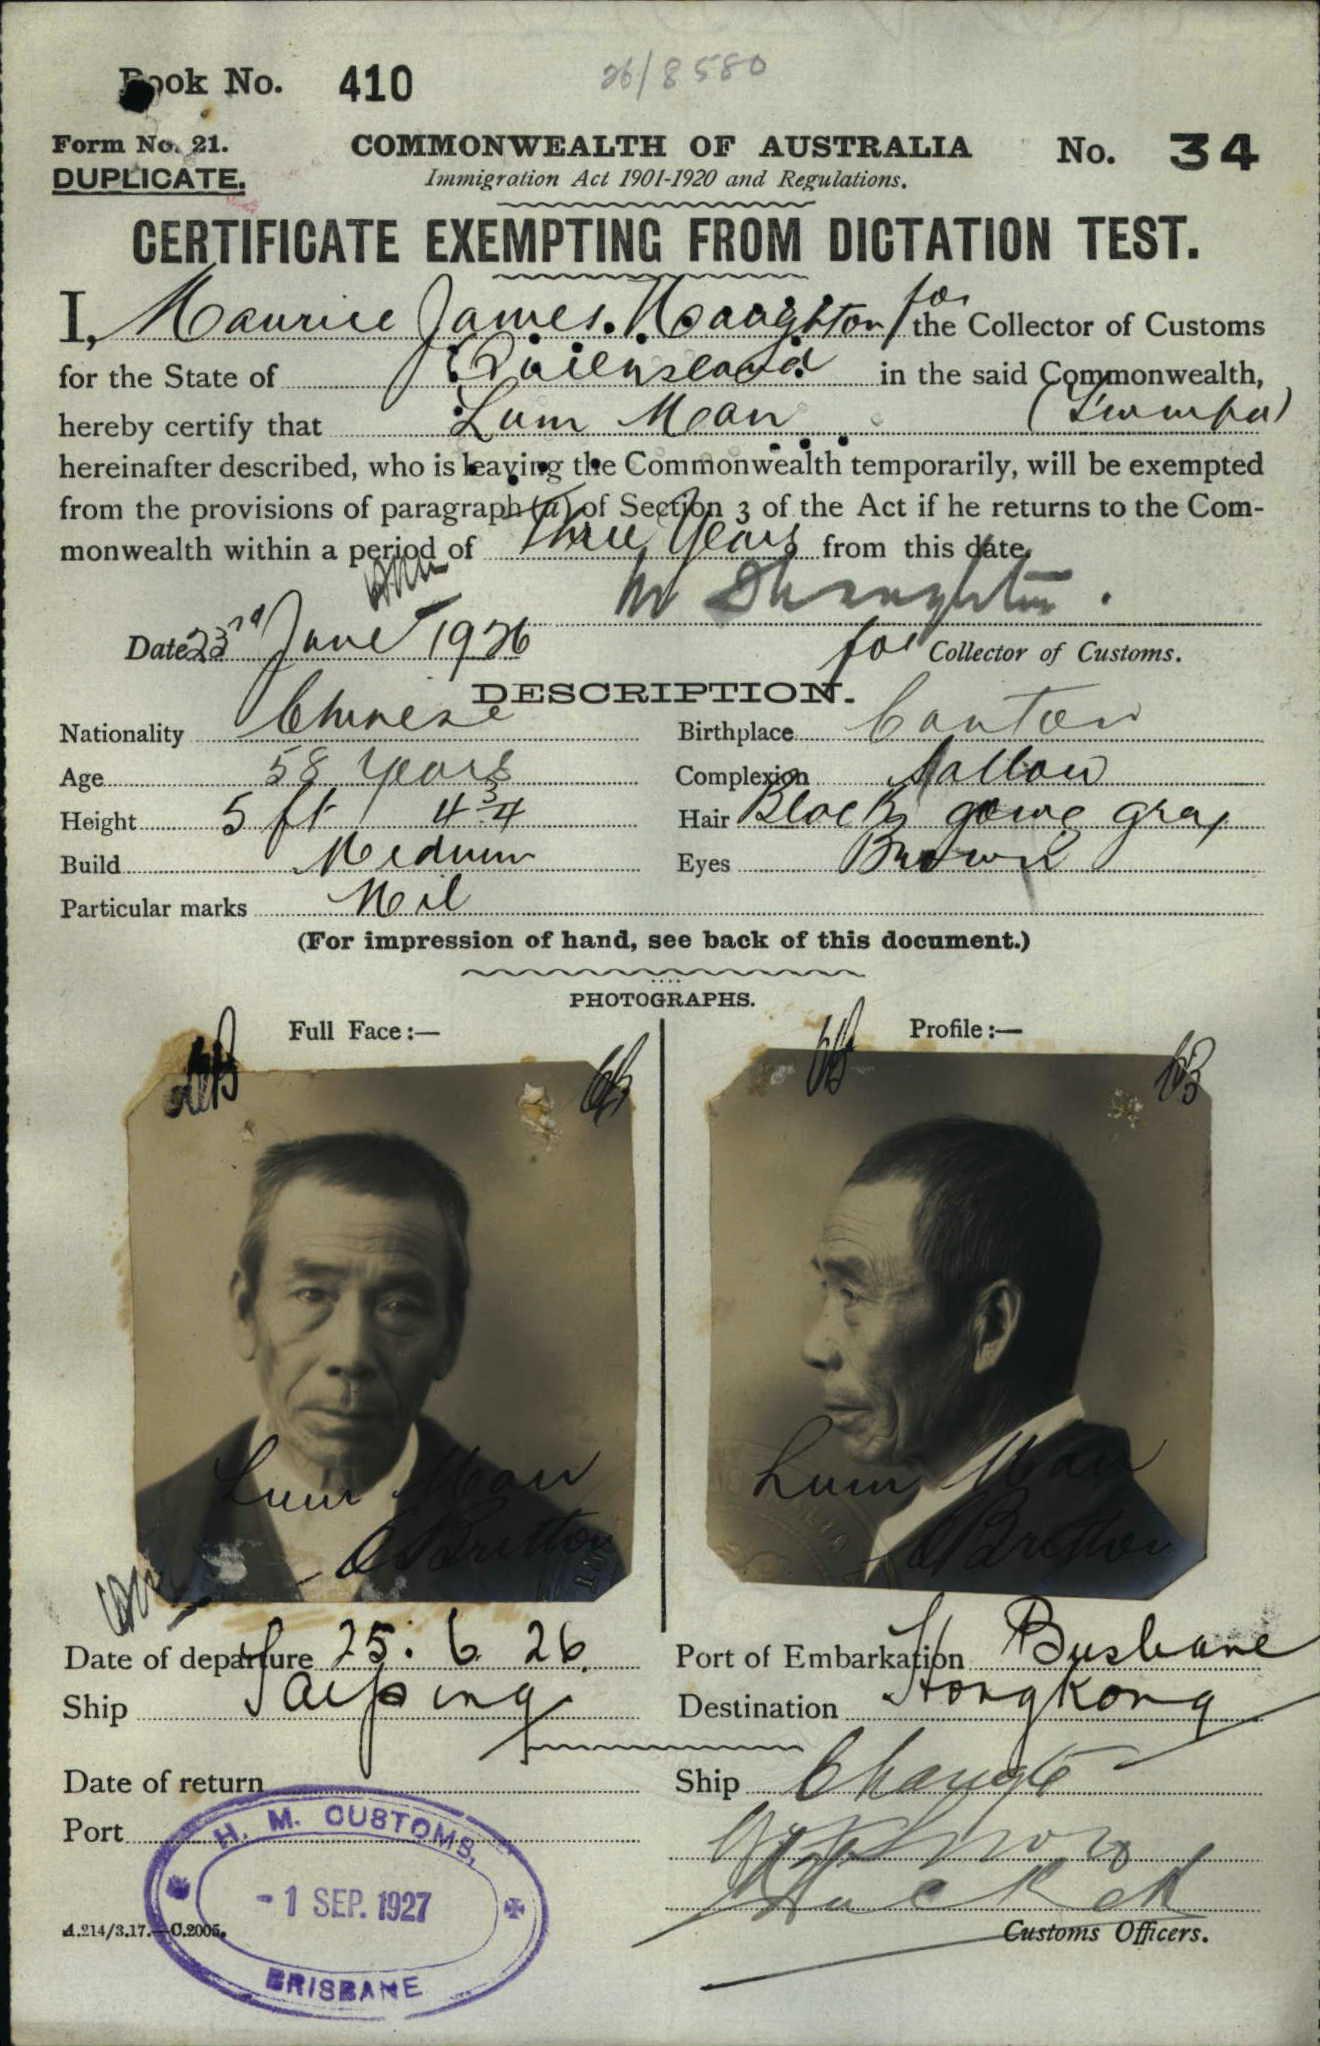 Book No. 410
26/8580
Form No. 21.
COMMONWEALTH OF AUSTRALIA
No. 34
DUPLICATE.
Immigration Act 1901-1920 and Regulations.
CERTIFICATE EXEMPTING FROM DICTATION TEST.
I, Maurice James. Naughton for the Collector of Customs
for the State of Queensland in the said Commonwealth,
hereby certify that Lum Man
hereinafter described, who is leaving the Commonwealth temporarily, will be exempted
from the provisions of paragraph (a) of Section 3 of the Act if he returns to the Com-
monwealth within a period of Three Years from this date.
Date 23rd June 1926
for Collector of Customs.
DESCRIPTION.
Nationality Chinese Birthplace Canton
Age 58 Years Complexion Sallow
Height 5 ft 4 3/4 Hair Black going gray
Build Medium Eyes Brown
Particular marks Nil
(For impression of hand, see back of this document.)
PHOTOGRAPHS.
Full Face:— Profile:—
Lum Man
Britton
Lum Man
Britton
Date of departure 25. 6. 26. Port of Embarkation Brisbane
Ship Taiping Destination Hongkong
Date of return Ship Changte
Port
H. M. CUSTOMS,
- 1 SEP. 1927
BRISBANE
A.214/3.17.—C.2005.
Customs Officers.